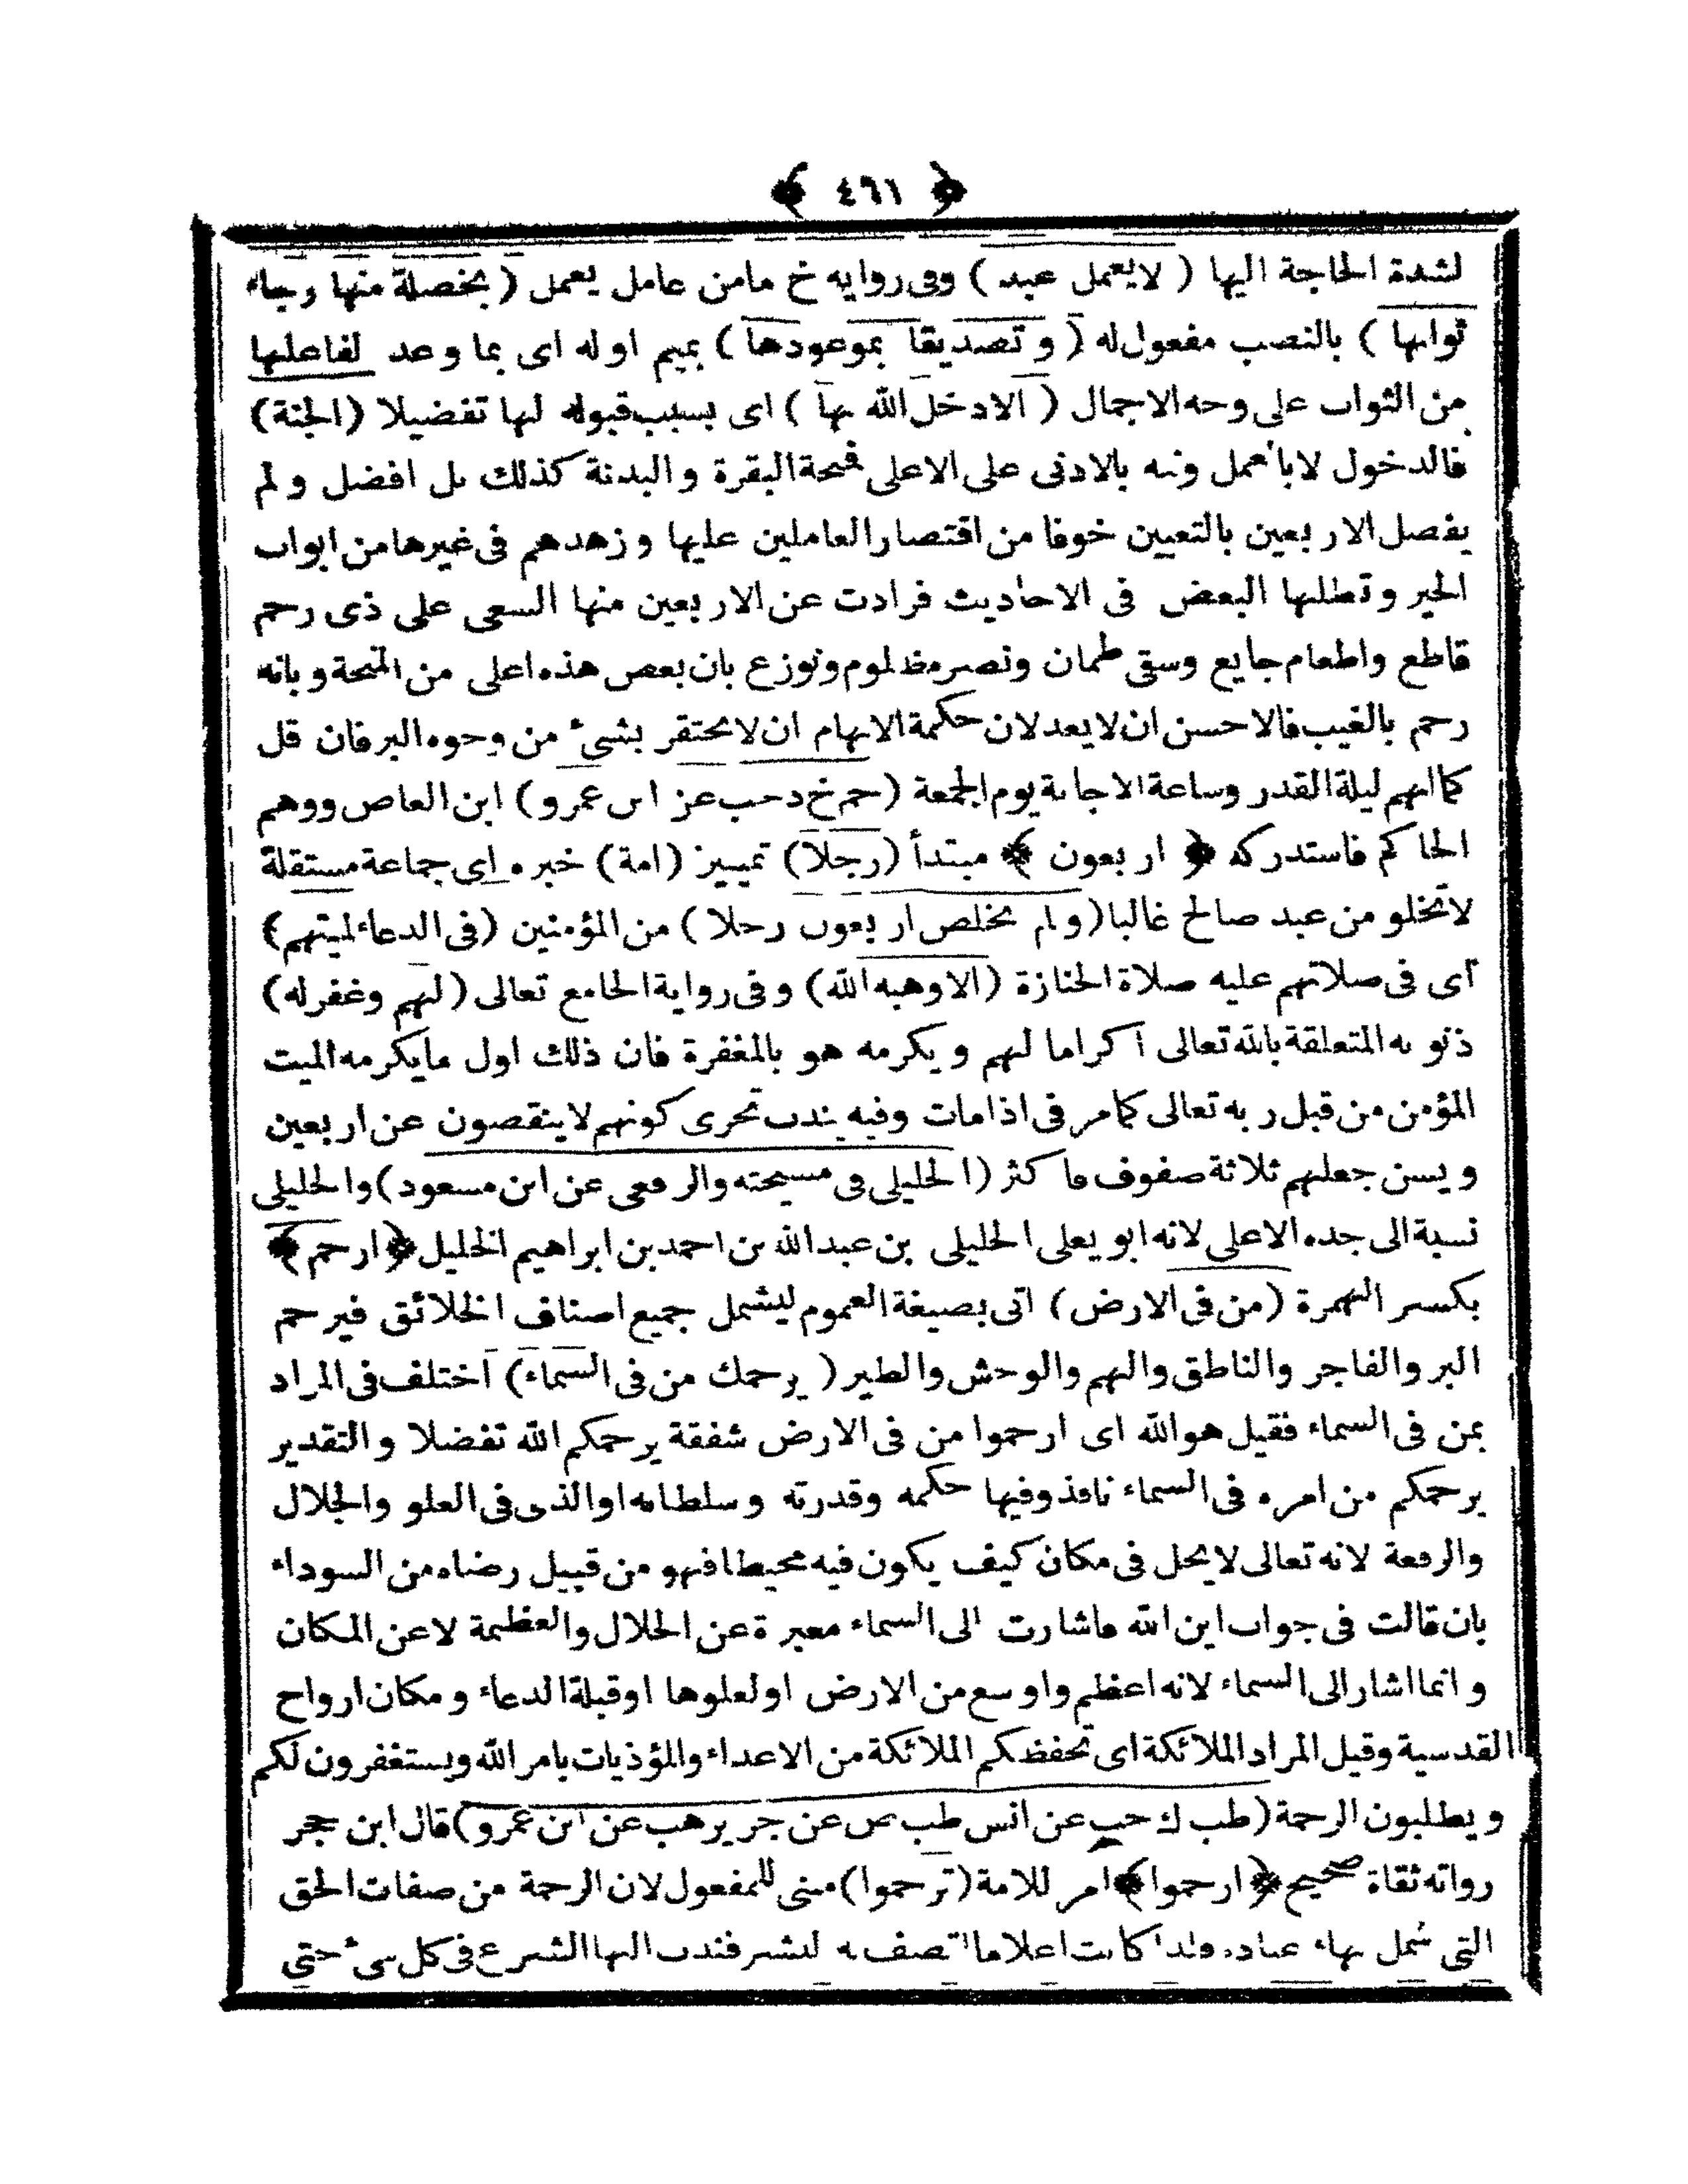 ﴿ ٤٦١ ﴾
لشدة الحاجة اليها ( لايعمل عبد ) وفى روايه خ مامن عامل يعمل ( بخصلة منها رجاء
ثوابها ) بالنصب مفعول له ( وتصديقا بموعودها ) بميم اوله اى بما وعد لفاعلها
من الثواب على وجه الاجمال ( الا دخل الله بها ) اى بسبب قبوله لها تفضيلا (الجنة)
فالدخول لا بالعمل ونبه بالادنى على الاعلى فمنحة البقرة والبدنة كذلك بل افضل ولم
يفصل الاربعين بالتعيين خوفا من اقتصار العاملين عليها وزهدهم فى غيرها من ابواب
الخير وتطلبها البعض فى الاحاديث فزادت عن الاربعين منها السعى على ذى رحم
قاطع واطعام جايع وسقى ظمان ونصر مظلوم ونوزع بان بعض هذه اعلى من المنحة وبانه
رجم بالغيب فالاحسن ان لا يعد لان حكمة الابهام ان لا يحتقر بشىء من وجوه البر فان قل
كما ابهم ليلة القدر وساعة الاجابة يوم الجمعة (حم خ د حب عن ابن عمرو) ابن العاص ووهم
الحاكم فاستدركه ﴿ اربعون ﴾ مبتدأ (رجلا) تمييز (امة) خبره اى جماعة مستقلة
لاتخلو من عبد صالح غالبا (ولم يخلص اربعون رجلا) من المؤمنين (فى الدعاء لميتهم)
اى فى صلاتهم عليه صلاة الجنازة (الا وهبه الله) وفى رواية الجامع تعالى (لهم وغفر له)
ذنوبه المتعلقة بالله تعالى اكراما لهم ويكرمه هو بالمغفرة فان ذلك اول مايكرمه الميت
المؤمن من قبل ربه تعالى كما مر فى اذا مات وفيه يندب تحرى كونهم لاينقصون عن اربعين
ويسن جعلهم ثلاثة صفوف فاكثر (الخليلى فى مسيخته والرفعى عن ابن مسعود) والخليلى
نسبة الى جده الاعلى لانه ابو يعلى الخليلى بن عبد الله بن احمد بن ابراهيم الخليل ﴿ ارحم ﴾
بكسر الهمزة (من فى الارض) اتى بصيغة العموم ليشمل جميع اصناف الخلائق فيرحم
البر والفاجر والناطق والبهم والوحش والطير ( يرحمك من فى السماء) اختلف فى المراد
بمن فى السماء فقيل هو الله اى ارحموا من فى الارض شفقة يرحمكم الله تفضلا والتقدير
يرحمكم من امره فى السماء نافذ وفيها حكمه وقدرته وسلطانه او الذى فى العلو والجلال
والرفعة لانه تعالى لا يحل فى مكان كيف يكون فيه محيطا فهو من قبيل رضاه من السوداء
بان قالت فى جواب اين الله فاشارت الى السماء معبرة عن الجلال والعظمة لا عن المكان
وانما اشار الى السماء لانه اعظم واوسع من الارض او لعلوها او قبلة الدعاء ومكان ارواح
القدسية وقيل المراد الملائكة اى تحفظكم الملائكة من الاعداء والمؤذيات بامر الله ويستغفرون لكم
ويطلبون الرحمة (طب ك حب عن انس طب ص عن جرير هب عن ابن عمرو) قال ابن حجر
رواته ثقاة صحيح ﴿ ارحموا ﴾ امر للامة (ترحموا) مبنى للمفعول لان الرحمة من صفات الحق
التى شمل بها عباده ولذا كانت اعلاما اتصف به البشر فندب اليها الشرع فى كل شىء حتى